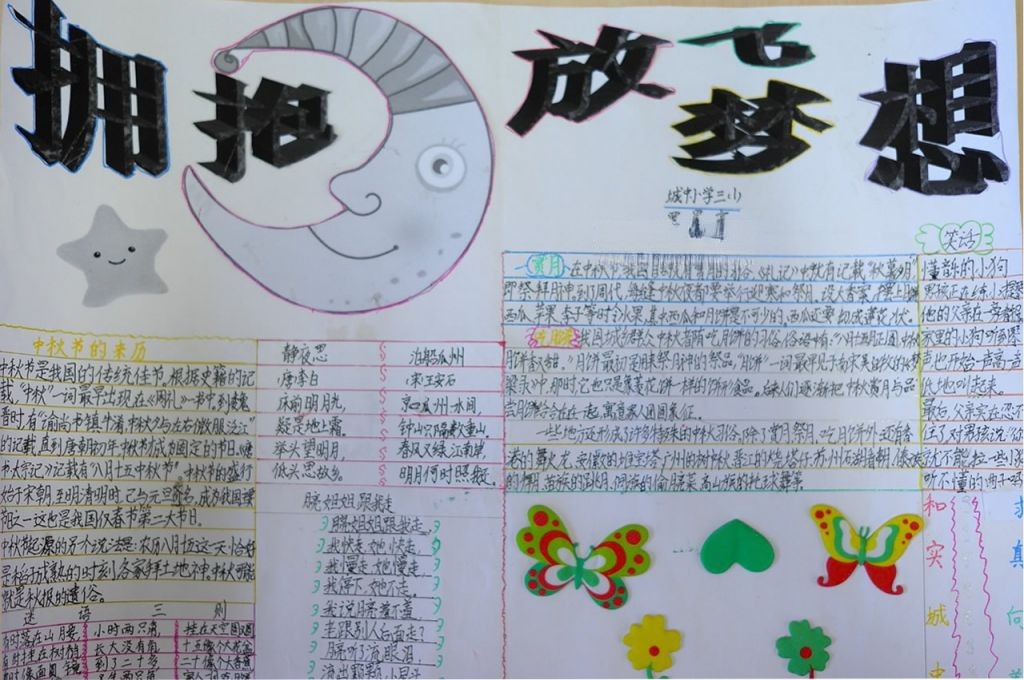 拥抱 放飞梦想
城中小学三(1)
中秋节的来历
中秋节是我国的传统佳节。根据史籍的记
载“中秋”一词最早出现在《周礼》一书中。到魏
晋时,有“谕尚书镇牛渚,中秋夕与左右微服泛江”
的记载。直到唐朝初年,中秋节成为固定的节日。《唐
书·太宗记》记载有“八月十五中秋节”。中秋节的盛行
始于宋朝,至明清时,已与元旦齐名,成为我国
节之一。这也是我国仅春节第二大节日。
就是秋报的遗俗。
谜语三则
有时落在山腰,
有时挂在树梢
有时像面圆镜
小时两只角,
长大没有角
到了二十多
挂在天空
静夜思
唐李白
床前明月光,
疑是地上霜。
举头望明月,
低头思故乡。
泊船瓜州
宋王安石
京口瓜州一水间,
钟山只隔数重山。
春风又绿江南岸,
明月何时照我还。
月亮姐姐跟我走
月亮姐姐跟我走,
我快走,她快走,
我慢走,她慢走,
我停下,她不走。
我说月亮羞不羞,
老跟别人后面走?
月亮听了流眼泪,
流出颗颗小星斗
赏月
在中秋节,我国
即祭拜月神。到了周代,每逢中秋夜都要举行迎寒和祭月。设大香案,摆上月饼
西瓜、苹果、李子等时令水果,其中西瓜和月饼是不可少的,西瓜还要切成莲花状。
吃月饼
我国城乡群众中秋都有吃月饼的习俗,俗语中有:“八月十五月正圆,中秋
月饼香又甜。”月饼最初是用来祭月神的祭品,“月饼”一词最早见于南宋吴自牧的《梦
粱录》中,那时,它也只是像菱花饼一样的饼形食品。后来人们逐渐把中秋赏月与品
尝月饼结合在一起,寓意家人团圆象征。
一些地方还形成了许多特殊的中秋习俗。除了赏月、祭月、吃月饼外,还有香
港的舞火龙、安徽的堆宝塔、广州的树中秋、晋江的烧塔仔、苏州石湖看串月、傣族
的拜月、苗族的跳月、侗族的偷月亮菜、高山族的托球舞等
笑话
懂音乐的小狗
男孩正在练小提琴
他的父亲在一旁看报
家里的小狗听到琴
声也开始一声高一声
低地叫起来。
最后,父亲实在忍不
住了对男孩说“你
就不能拉一些小狗
听不懂的曲子吗
和
实
城
中
求
真
向
善